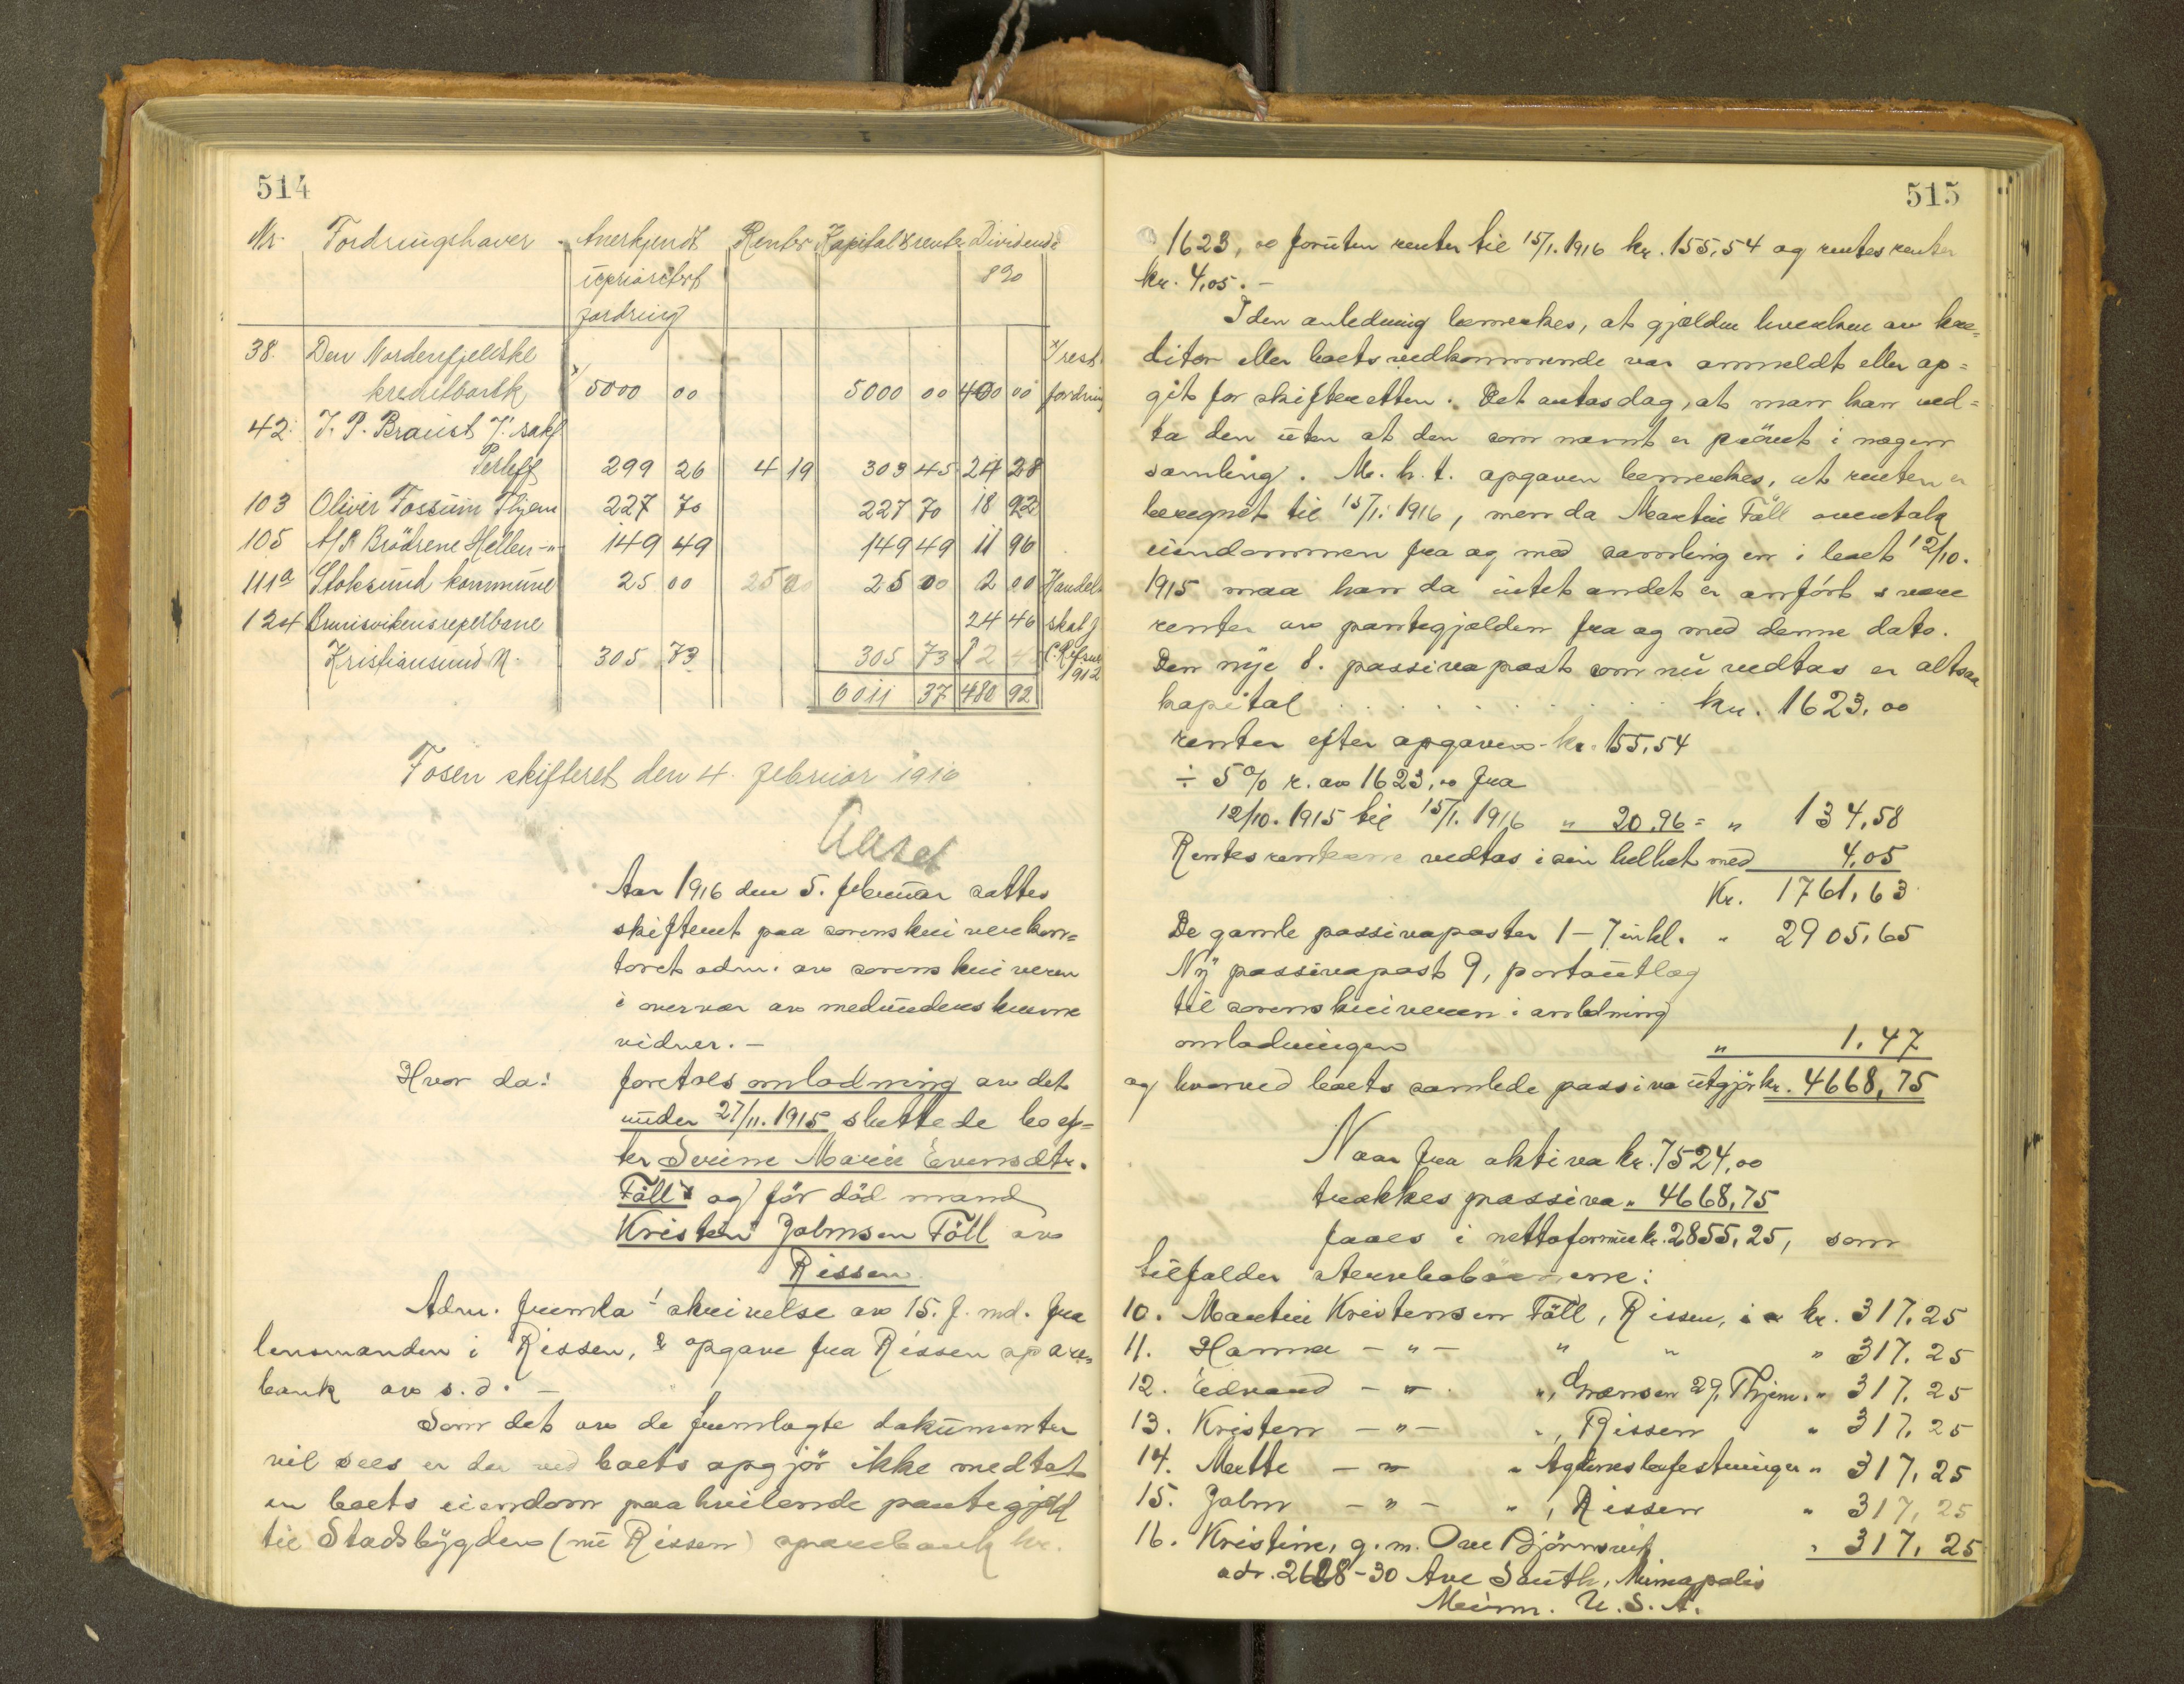 514
Nr. Fordringshaver Anerkjendt Renter Kapital & renter Dividende
uprioritert 8%
fordring
38. Den Nordenfjeldske x/ rest
kreditbank x/ 5000 00 5000 00 400 00 fordring
42. J. P. Braust 299 26 4 19 303 45 24 28
103 Oliver Fossum Thjem 227 70 227 70 18 92
105 A/S Brödrene Hellen -"- 149 49 149 49 11 96
111a Stoksund kommune 25 00 25 00 2 00 Handels
124 Brunsvikens reperbane 24 46 skat f
Kristiansund N. 305 73 305 73 1912
6011 37 480 92
Fosen skifteret den 4. februar 1916
Aaset
Aar 1916 den 5. februar sattes
skifteret paa sorenskriverkon=
toret adm. av sorenskriveren
i overvær av medunderskrevne
vidner. -
Hvor da: foretoes omlodning av det
under 27/11. 1915 sluttede bo ef=
ter Serine Marie Evensdtr.
Föll og før död mand
Kristen Johnsen Föll av
Rissen
Adm. fremla 1 skrivelse av 15. f. md. fra
lensmanden i Rissen, 2 opgave fra Rissen spare=
bank av s. d. -
Som det av de fremlagte dokumenter
vil sees er der ved boets opgjör ikke medtat
en boets eiendom paahvilende pantegjæld
til Stadsbygdens (nu Rissen) sparebank kr.
515
1623,00 foruten renter til 15/1. 1916 kr. 155,54 og rentesrenter
kr. 4,05. -
I den anledning bemerkes, at gjælden hverken av kre=
ditor eller boets vedkommende var anmeldt eller op=
git for skifteretten. Det antas dog, at man kan ved=
ta den uten at den som nævnt er prövet i nogen
samling. M. h. t. opgaven bemerkes, at renten er
beregnet til 15/1. 1916, men da Martin Föll overtok
eiendommen fra og med samlingen i boet 12/10.
1915 maa han da intet andet er anfört svare
renter av pantegjælden fra og med denne dato.
Den nye 8. passivapost som nu vedtas er altsaa
kapital . . . . . . . . . . kr. 1623,00
renter efter opgaven kr. 155,54
÷ 5% r. av 1623,00 fra
12/10. 1915 til 15/1. 1916 " 20,96 = " 134,58
Rentesrenterne vedtas i sin helhet med 4,05
Kr. 1761,63
De gamle passivaposter 1 - 7 inkl. " 2905,65
Ny passivapost 9, portoutlæg
til sorenskriveren i anledning
omlodningen " 1.47
og hvorved boets samlede passiva utgjör kr. 4668,75
Naar fra aktiva kr. 7524,00
trækkes passiva " 4668,75
faaes i nettoformue kr. 2855,25, som
tilfalder
10. Martin Kristensen Föll, Rissen, kr. 317,25
11. Hanna - " - " " " 317,25
12. Edvard - " - ", Grænsen 29, Thjem. " 317,25
13. Kristen - " - ", Rissen " 317,25
14. Mette - " - " Agdenes befestninger " 317,25
15. John - " - ", Rissen " 317,25
16. Kristine, g. m. Ove Björnsvik " 317,25
adr. 2628-30 Ave South, Minapolis
Minn. U.S.A.